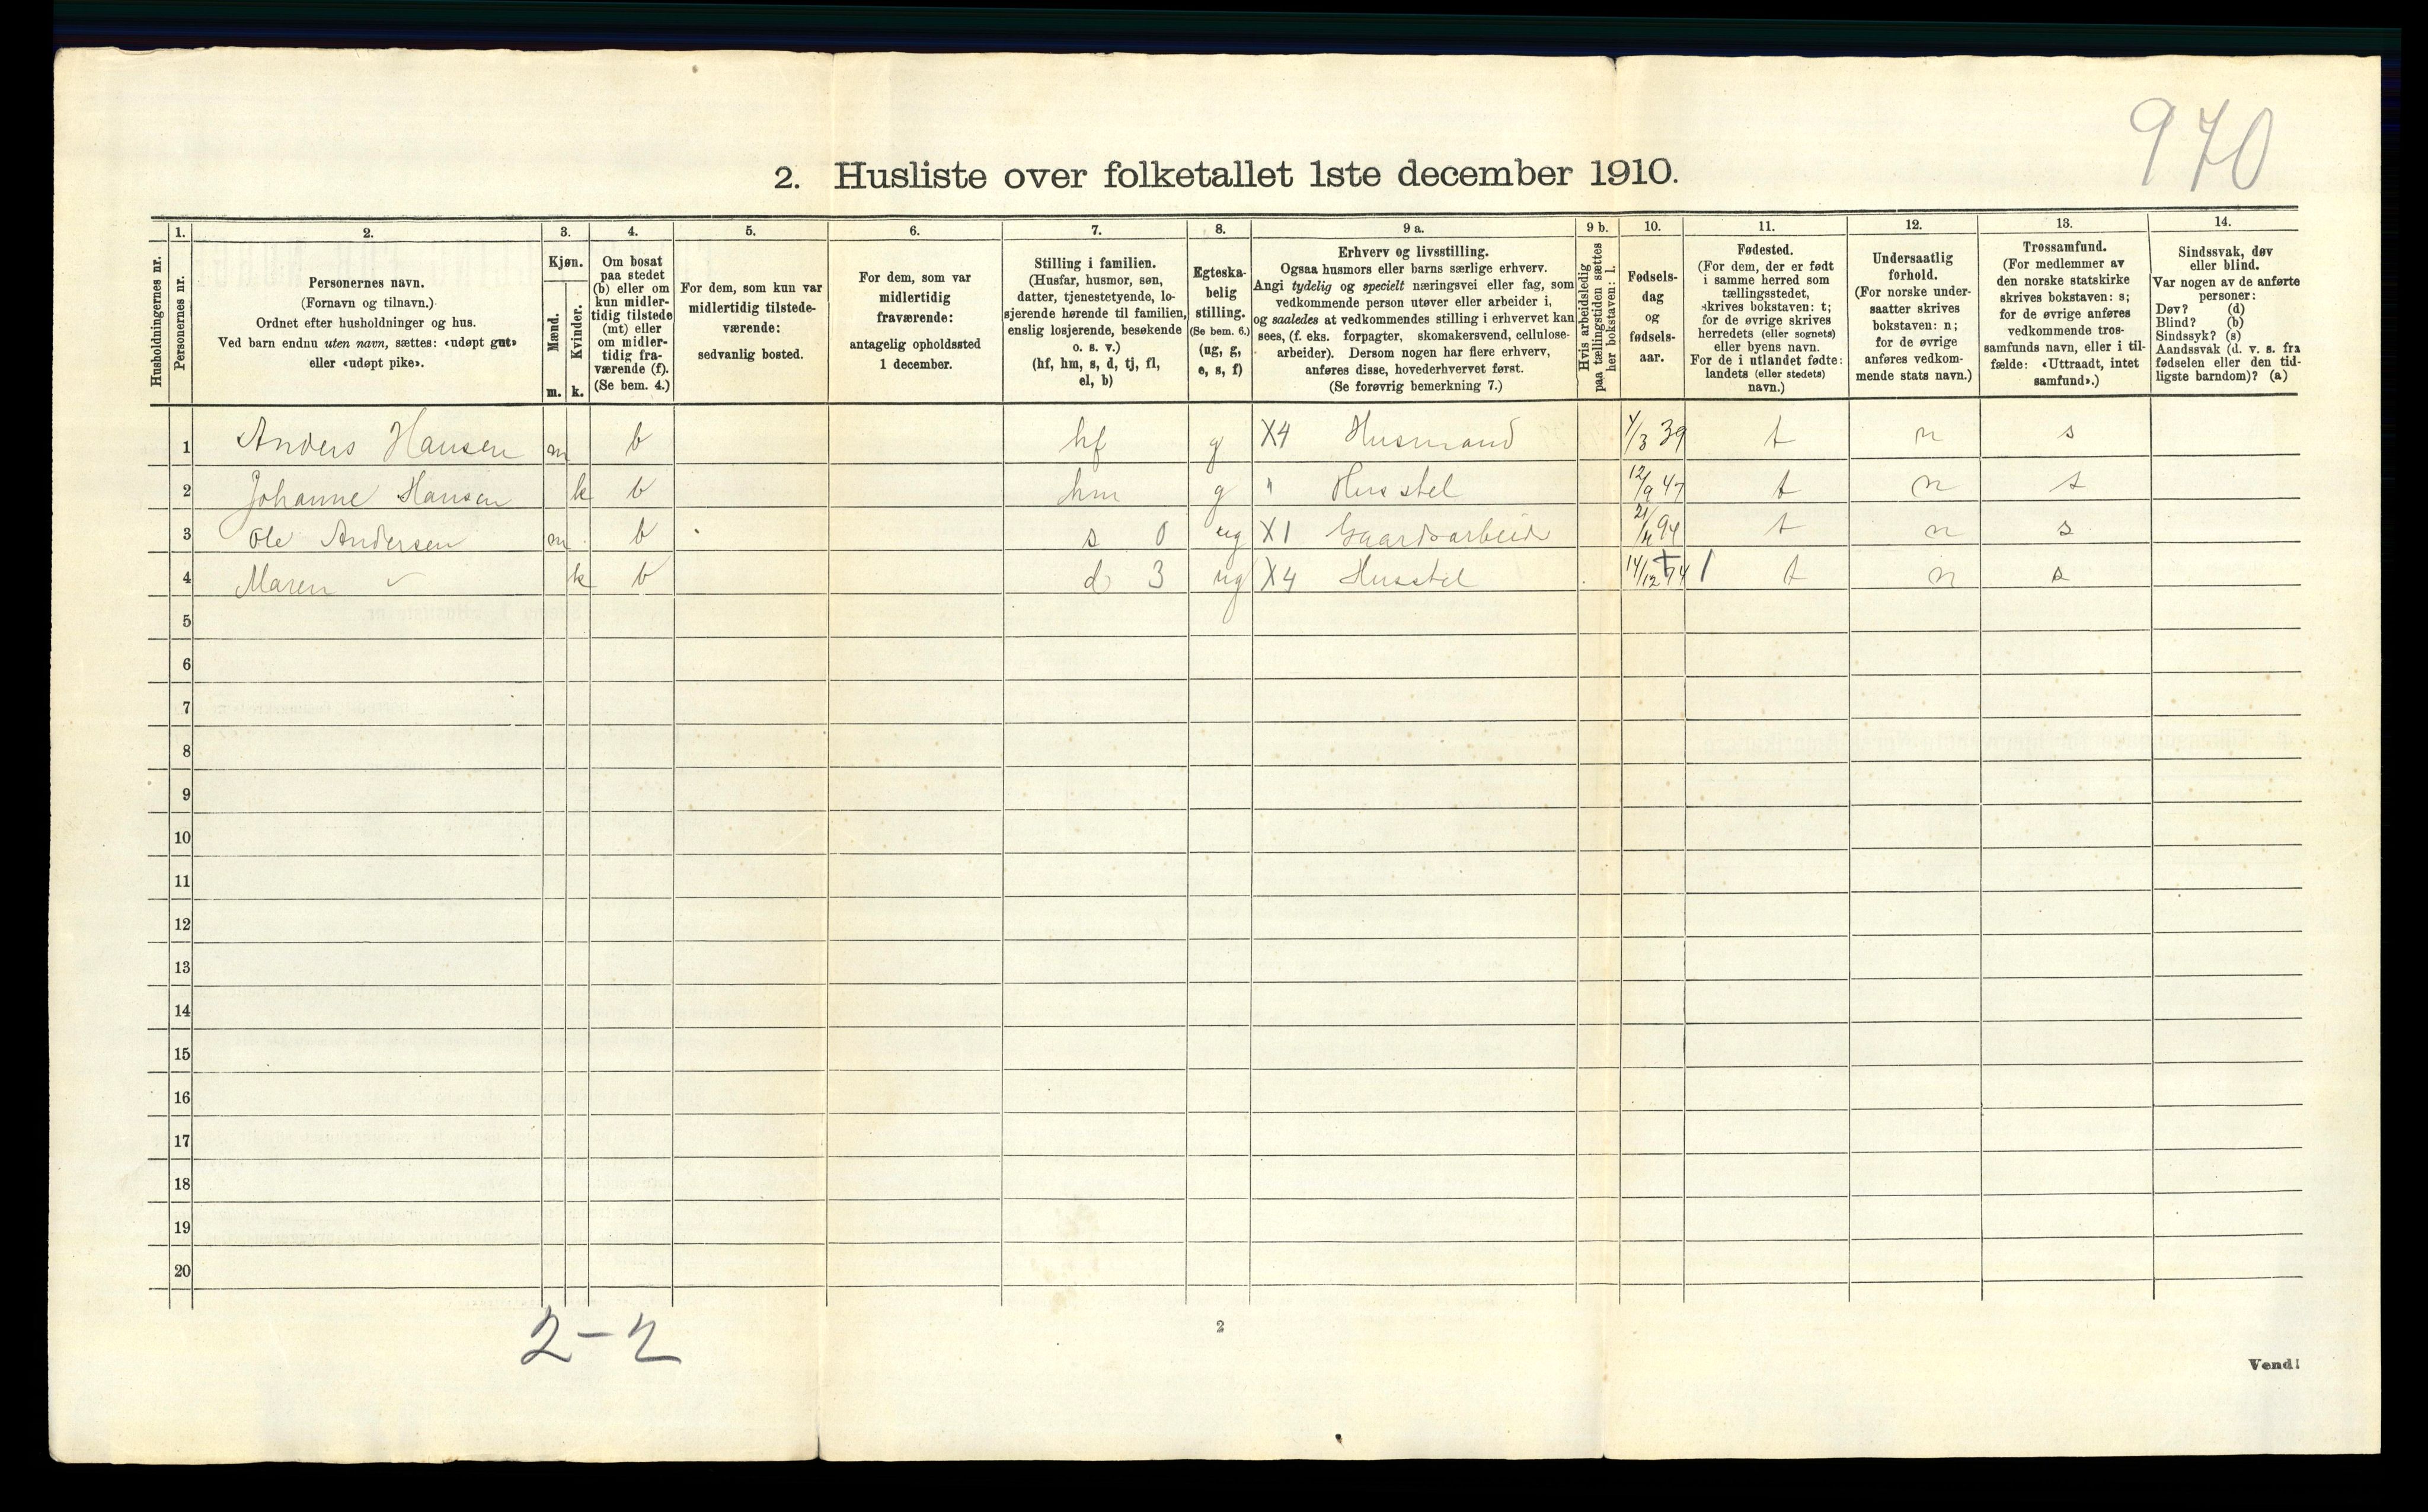 970
2. Husliste over folketallet 1ste december 1910.
Husholdningernes nr.
1.
Personernes nr.
2.
Personernes navn.
(Fornavn og tilnavn.)
Ordnet efter husholdninger og hus.
Ved barn endnu uten navn, sættes: «udøpt gut»
eller «udøpt pike».
3.
Kjøn.
Mænd.
Kvinder.
m. k.
4.
Om bosat
paa stedet
(b) eller om
kun midler-
tidig tilstede
(mt) eller
om midler-
tidig fra-
værende (f).
(Se bem. 4.)
5.
For dem, som kun var
midlertidig tilstede-
værende:
sedvanlig bosted.
6.
For dem, som var
midlertidig
fraværende:
antagelig opholdssted
1 december.
7.
Stilling i familien.
(Husfar, husmor, søn,
datter, tjenestetyende, lo-
sjerende hørende til familien,
enslig losjerende, besøkende
o. s. v.)
(hf, hm, s, d, tj, fl,
el, b)
8.
Egteska-
belig
stilling.
(Se bem. 6.)
(ug, g,
e, s, f)
9 a.
Erhverv og livsstilling.
Ogsaa husmors eller barns særlige erhverv.
Angi tydelig og specielt næringsvei eller fag, som
vedkommende person utøver eller arbeider i,
og saaledes at vedkommendes stilling i erhvervet kan
sees, (f. eks. forpagter, skomakersvend, cellulose-
arbeider). Dersom nogen har flere erhverv,
anføres disse, hovederhvervet først.
(Se forøvrig bemerkning 7.)
9 b.
Hvis arbeidsledig
paa tællingstiden sættes
her bokstaven: l.
10.
Fødsels-
dag
og
fødsels-
aar.
11.
Fødested.
(For dem, der er født
i samme herred som
tællingsstedet,
skrives bokstaven: t;
for de øvrige skrives
herredets (eller sognets)
eller byens navn.
For de i utlandet fødte:
landets (eller stedets)
navn.)
12.
Undersaatlig
forhold.
(For norske under-
saatter skrives
bokstaven: n;
for de øvrige
anføres vedkom-
mende stats navn.)
13.
Trossamfund.
(For medlemmer av
den norske statskirke
skrives bokstaven: s;
for de øvrige anføres
vedkommende tros-
samfunds navn, eller i til-
fælde: «Uttraadt, intet
samfund».)
14.
Sindssvak, døv
eller blind.
Var nogen av de anførte
personer:
Døv? (d)
Blind? (b)
Sindssyk? (s)
Aandssvak (d. v. s. fra
fødselen eller den tid-
ligste barndom)? (a)
1 Anders Hansen m b hf g X4 Husmand 4/3 39 t n s
2 Johanne Hansen k b hm g " Husstel 12/9 47 t n s
3 Ole Andersen m b s 0 ug X1 Gaardsarbeide 94 t n s
4 Maren ✓ k b d 3 ug X4 Husstel 14/12 74 t n s
5
6
7
8
9
10
11
12
13
14
15
16
17
18
19
20
2-2
2
Vend!